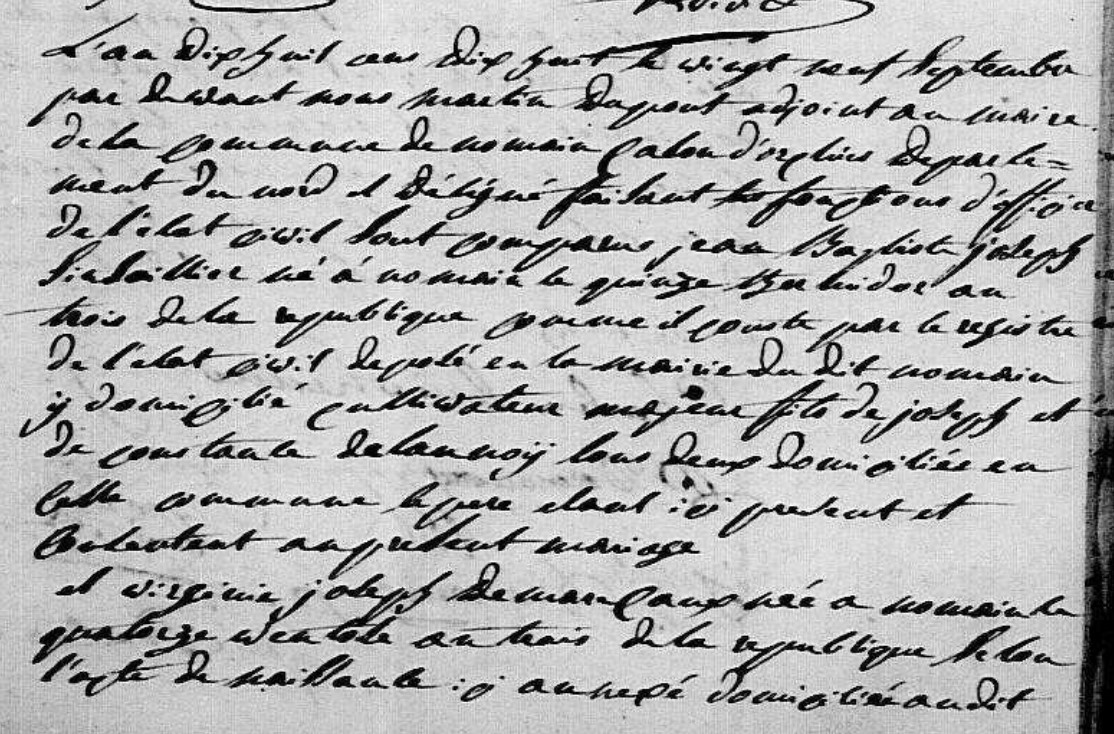 L'an dix huit cens dix huit le vingt neuf Septembre
par devant nous martin Dupont adjoint au maire
de la commune de nomain Caton d'orchies departe=
ment du nord et délégué faisant les fonctions d'officier
de l'état civil sont comparus jean Baptiste joseph
né à nomain le quinze thermidor an
trois de la republique comme il conste par le registre
de l'etat civil deposé en la mairie du dit nomain
y domicilié cultivateur majeur fils de joseph et
de constante delannoÿ tous deux domiciliés en
cette commune le pere etant ici present et
Consentant au present mariage
et virginie joseph Demarcaux née a nomain le
quatorze ventose an trois de la republique selon
l'acte de naissance ici annexé domiciliée au dit